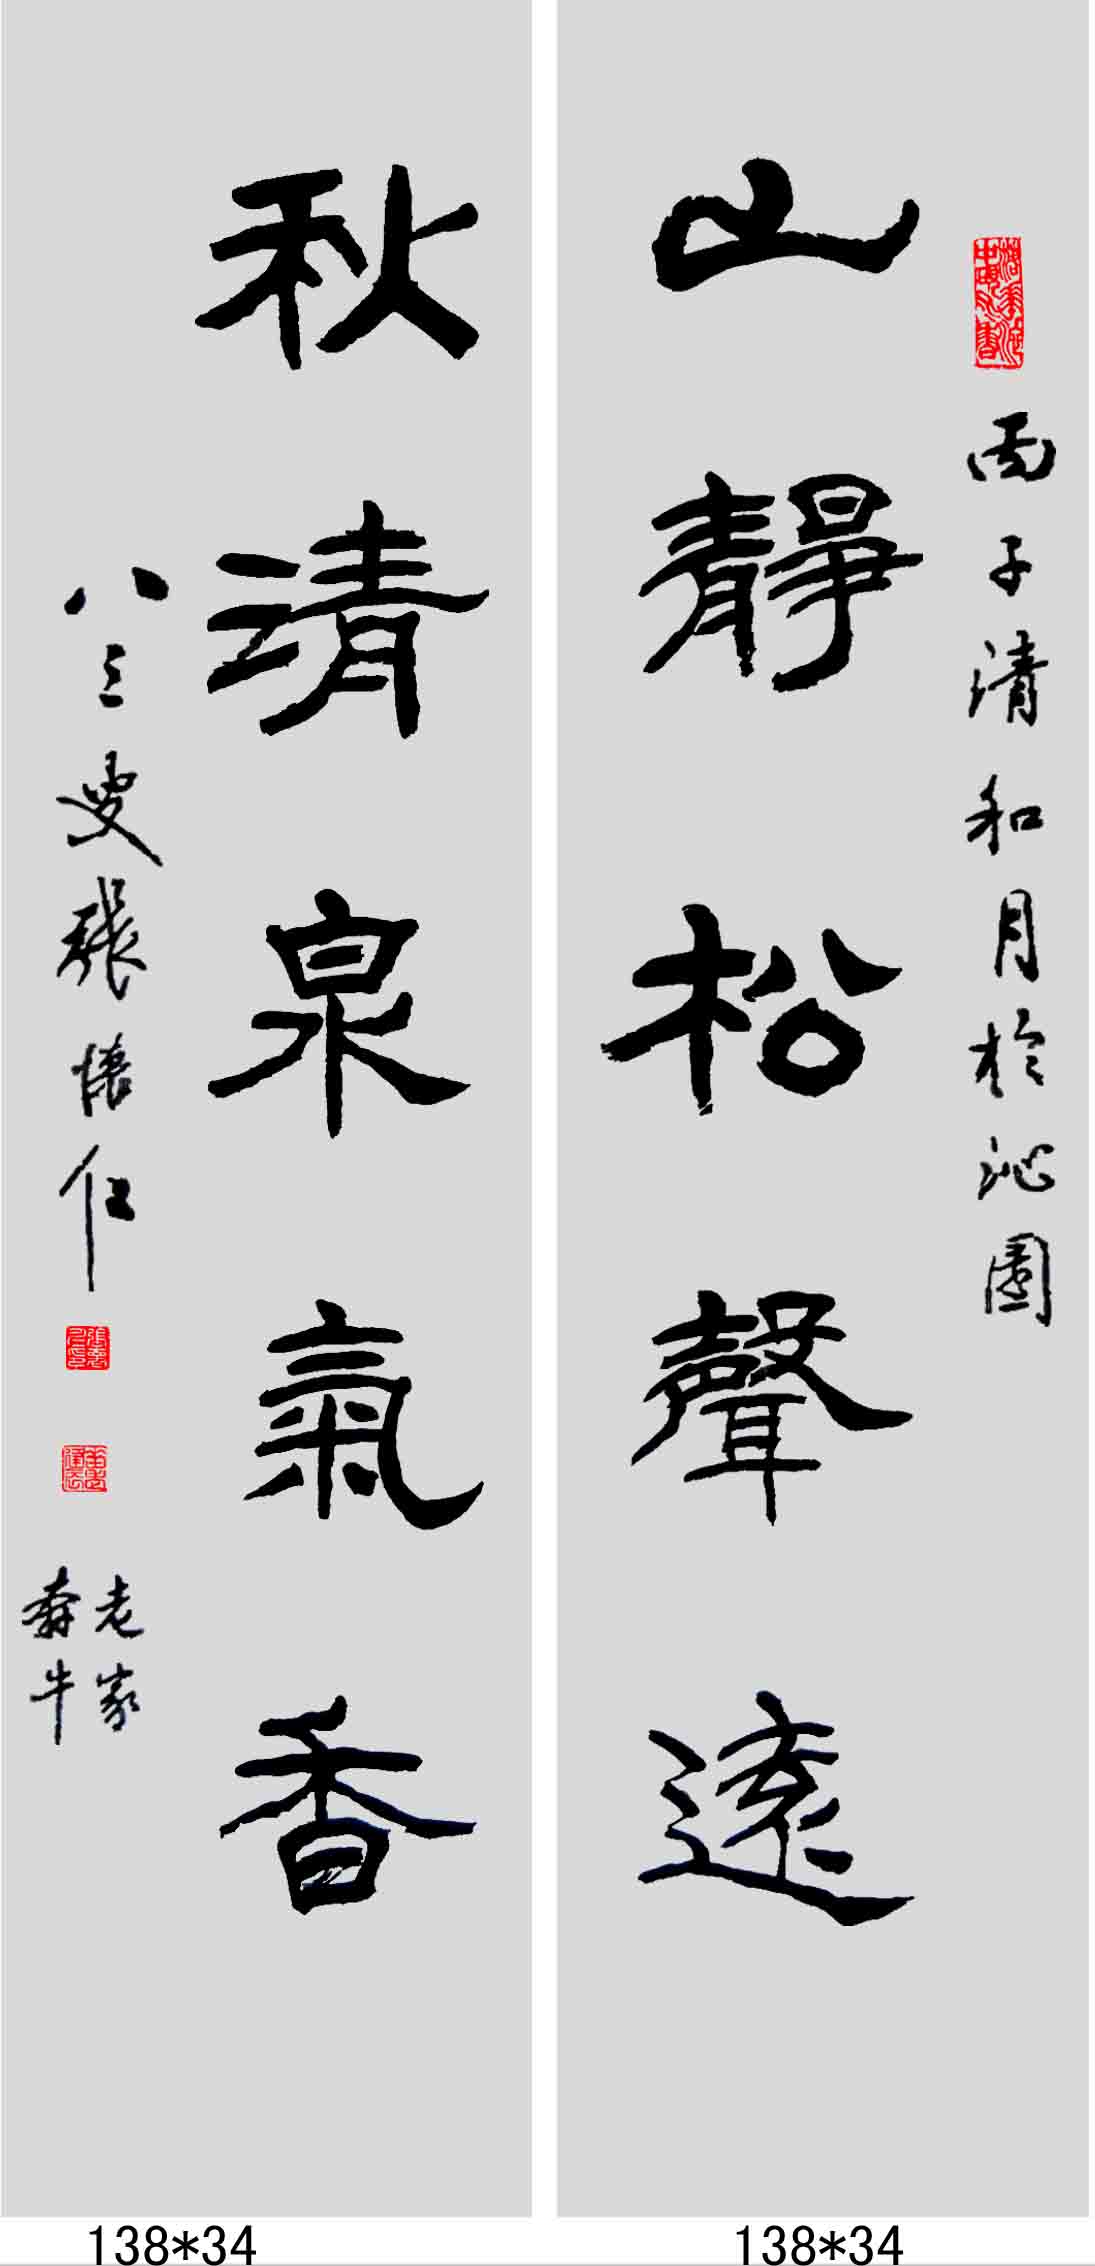 丙子清和月於沁園
山靜松聲遠
秋清泉氣香
八三叟張懷仁
老家
奔牛
138*34
138*34